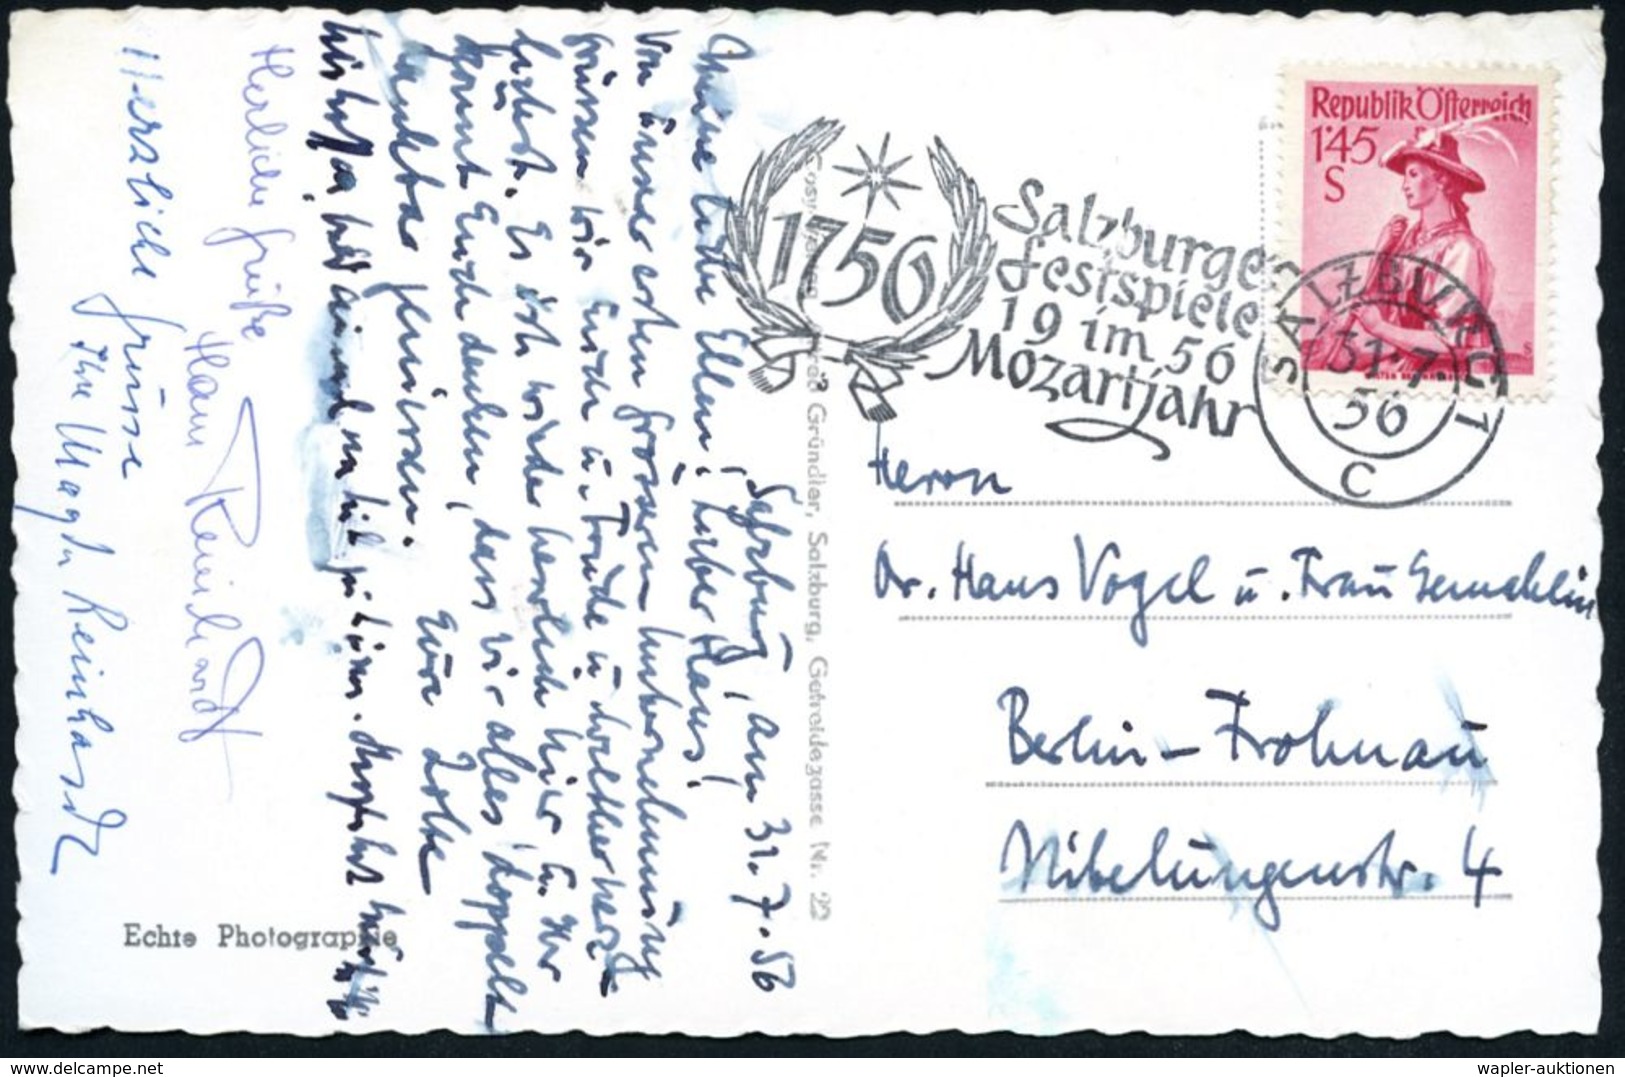 Salzburg, am 31.7.56
Meine liebe Ellen, lieber Hans!
Von unserer ersten grösseren Unternehmung
grüssen wir Euch u. Trude u. Walther herz-
lichst. Es ist wieder herrlich hier u. Ihr
könnt Euch denken, dass wir alles doppelt
dankbar genießen.
Eure Lotte
Herzliche Grüße
Hans Reinhardt
Herzliche Grüsse
Ihre Magda Reinhardt
Echte Photographie
Gründler, Salzburg, Getreidegasse Nr. 22
1756
Salzburger
Festspiele
19 im 56
Mozartjahr
Republik Österreich
1'45
S
SALZBURG 1
31.7.
56
C
Herrn
Dr. Hans Vogel u. Frau Gemahlin
Berlin-Frohnau
Nibelungenstr. 4
wapler-auktionen